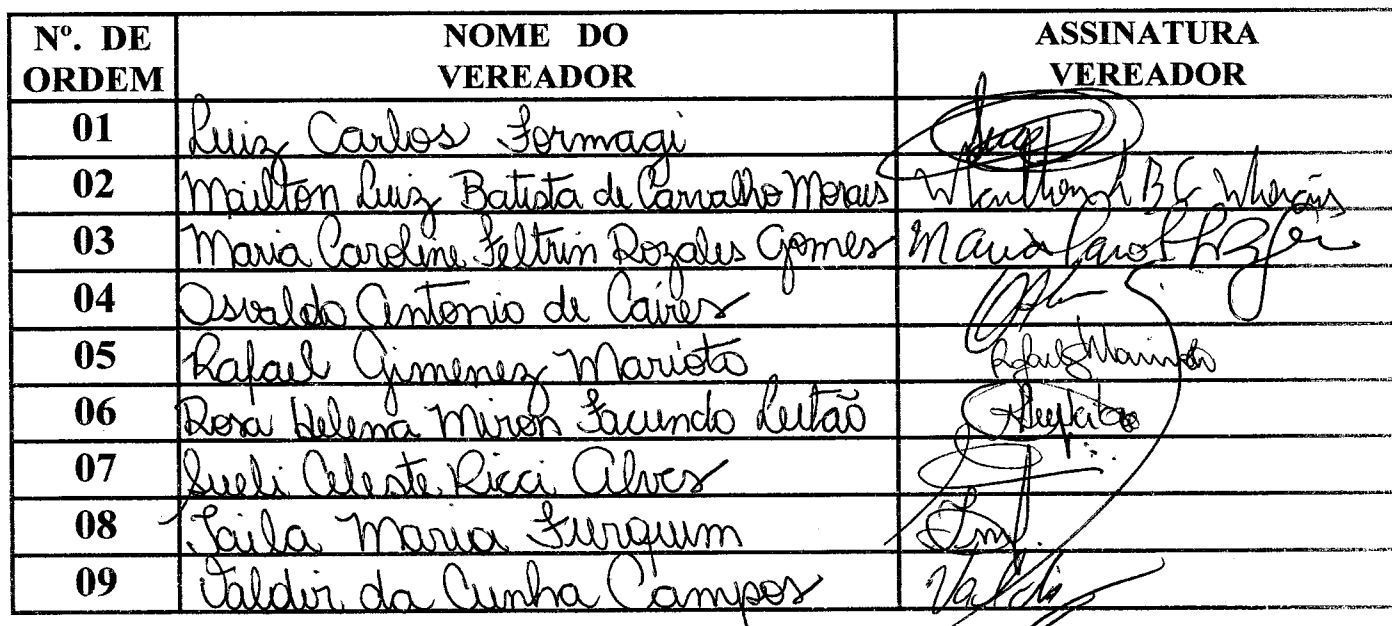 Nº. DE ORDEM NOME DO VEREADOR ASSINATURA VEREADOR
01 Luiz Carlos Formagi
02 Mailton Luiz Batista de Carvalho Morais
03 Maria Caroline Feltrin Rozales Gomes Maria Carol
04 Osvaldo Antonio de Caires
05 Rafael Gimenez Marioto Rafael Marioto
06 Rosa Helena Miron Facundo Leitão
07 Sueli Celeste Ricci Alves
08 Taila Maria Furquim
09 Valdir da Cunha Campos